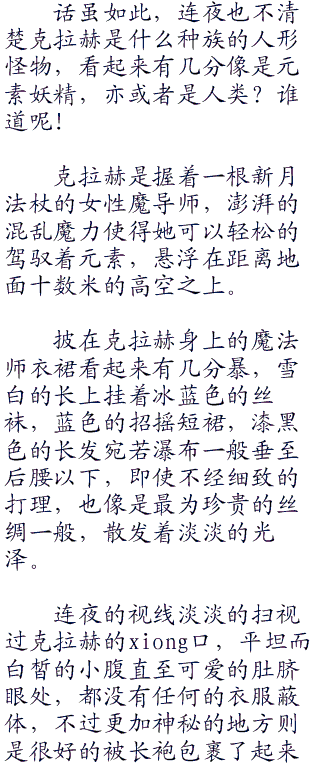 话虽如此，连夜也不清
楚克拉赫是什么种族的人形
怪物，看起来有几分像是元
素妖精，亦或者是人类？谁
道呢！
　　克拉赫是握着一根新月
法杖的女性魔导师，澎湃的
混乱魔力使得她可以轻松的
驾驭着元素，悬浮在距离地
面十数米的高空之上。
　　披在克拉赫身上的魔法
师衣裙看起来有几分暴，雪
白的长上挂着冰蓝色的丝
袜，蓝色的招摇短裙，漆黑
色的长发宛若瀑布一般垂至
后腰以下，即使不经细致的
打理，也像是最为珍贵的丝
绸一般，散发着淡淡的光
泽。
　　连夜的视线淡淡的扫视
过克拉赫的xiong口，平坦而
白皙的小腹直至可爱的肚脐
眼处，都没有任何的衣服蔽
体，不过更加神秘的地方则
是很好的被长袍包裹了起来